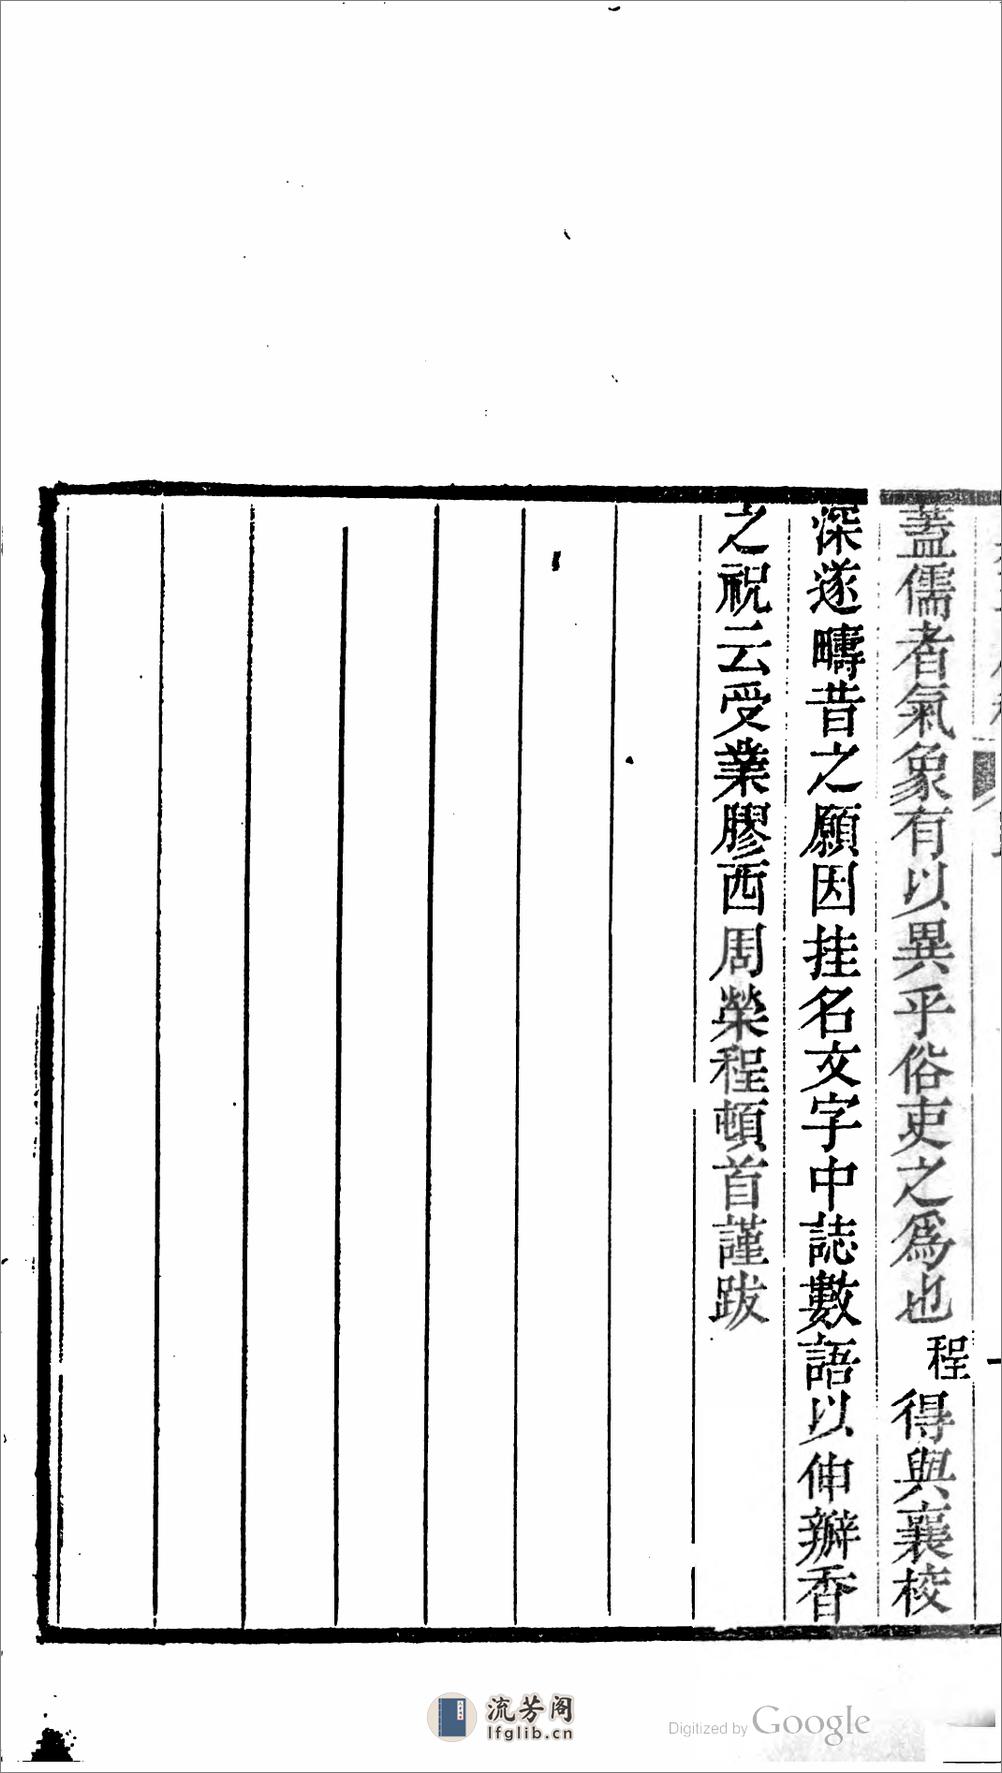 蓋儒者氣象有以異乎俗吏之爲也程得與襄校
深遂疇昔之願因挂名文字中誌數語以伸瓣香
之祝云受業膠西周榮程頓首謹跋
流芳阁
lfglib.cn
Digitized by Google